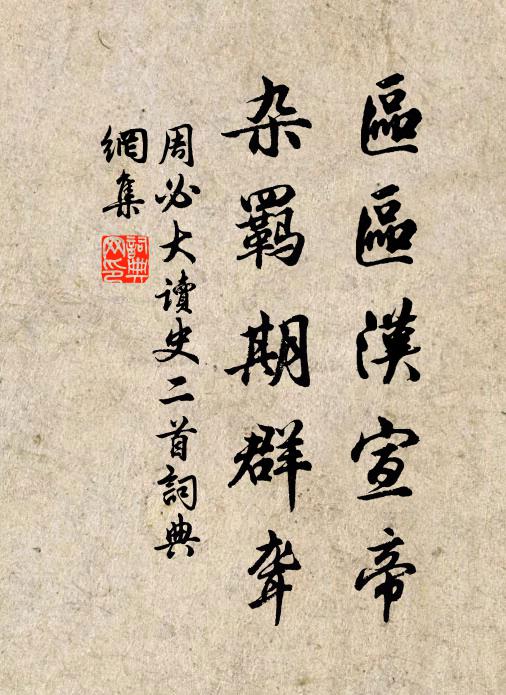 區區漢宣帝
杂羈期群耸
周必大读史二首詞典
網集
詞典
网印